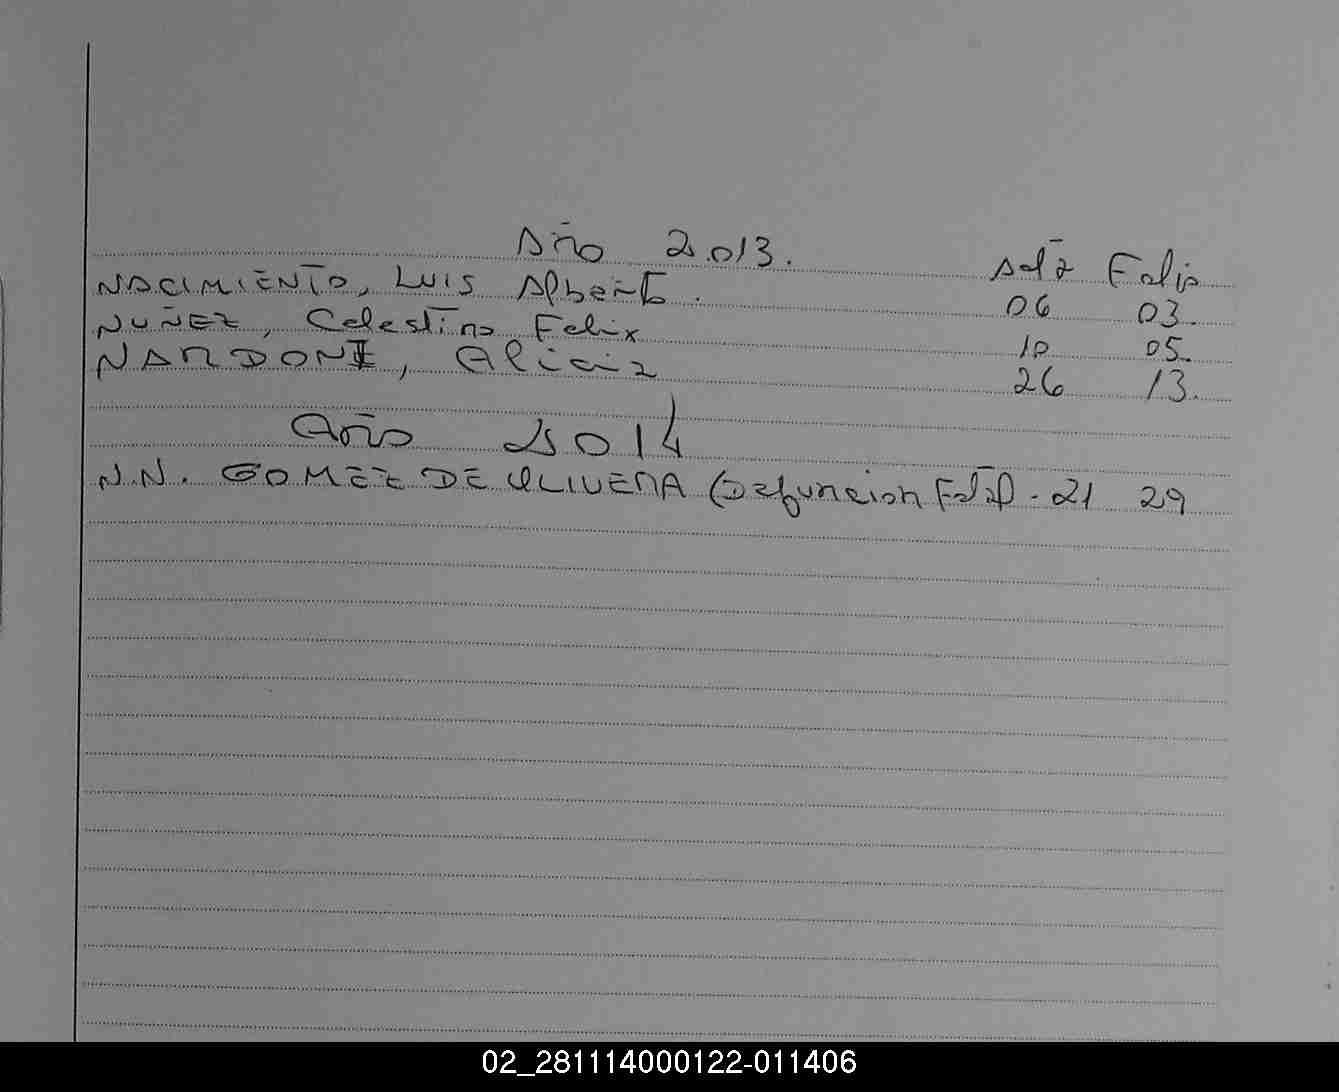 Año 2.013. Acta Folio
NACIMIENTO, LUIS Alberto. 06 03.
NUÑEZ, Celestino Felix 10 05.
NARDONI, Alicia 26 13.
Año 2014
N.N. GOMEZ DE OLIVERA (Defuncion Fetal) - 21 29
02_281114000122-011406